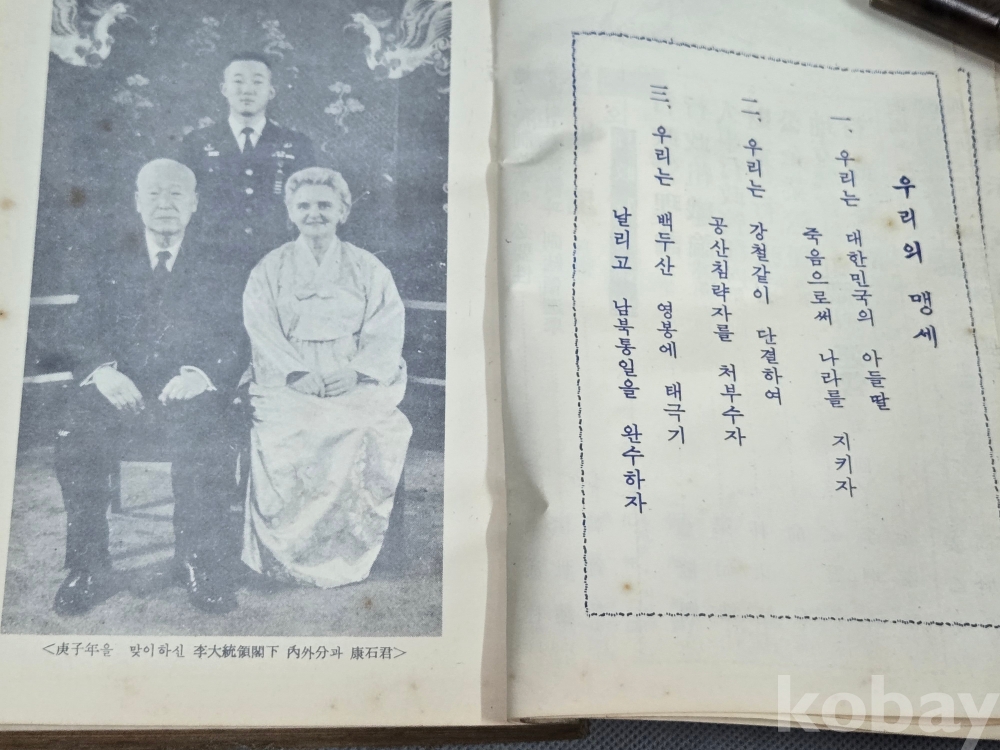 <庚子年을 맞이하신 李大統領閣下 內外分과 康石君>
우리의 맹세
一. 우리는 대한민국의 아들딸
죽음으로써 나라를 지키자
二. 우리는 강철같이 단결하여
공산침략자를 처부수자
三. 우리는 백두산 영봉에 태극기
날리고 남북통일을 완수하자
kobay